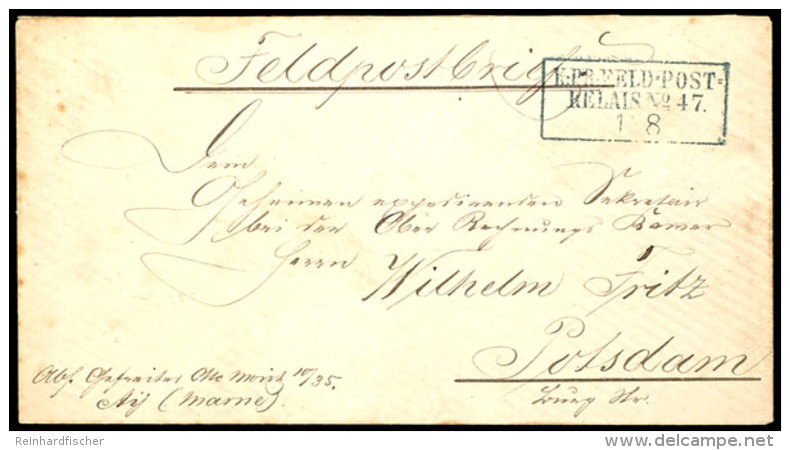 Feldpostbrief
K:PR:FELD-POST-
RELAIS No 47.
1 8
Dem
Geheimen expedirenden Sekretair
bei der Ober Rechnungs Kamer
Herrn
Wilhelm Fritz
Potsdam
Burg Str.
Abs. Gefreiter Otto 10/35.
Aij (Marne)
Reinhardfischer
delcampe.net